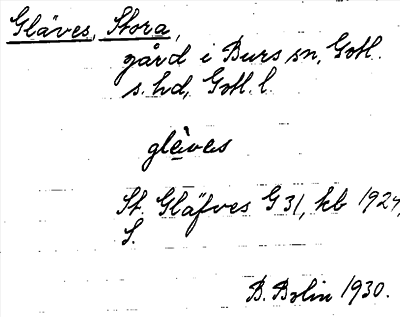 Gläves, Stora,
gård i Burs sn, Gotl.
s. hd, Gotl. l.
glèves
St. Gläfves G 31, kb 1924,
S.
B. Bolin 1930.